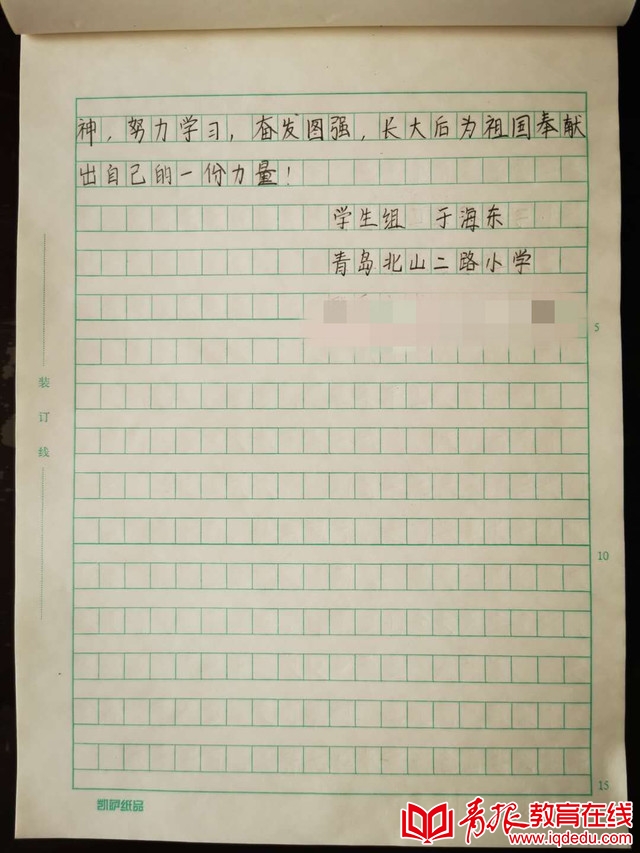 神，努力学习，奋发图强，长大后为祖国奉献
出自己的一份力量！
学生组 于海东
青岛北山二路小学
5
装订线
10
15
凯萨纸品
青报教育在线
www.iqdedu.com